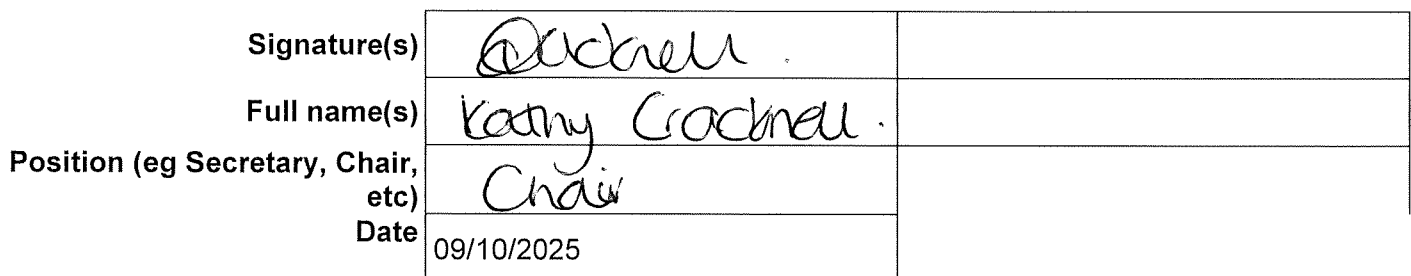 Signature(s)
Full name(s) Kathy Cracknell.
Position (eg Secretary, Chair,
etc) Chair
Date 09/10/2025